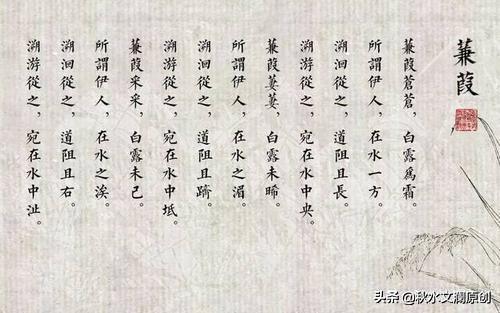 蒹葭
蒹葭蒼蒼，白露爲霜。
所謂伊人，在水一方。
溯洄從之，道阻且長。
溯游從之，宛在水中央。
蒹葭萋萋，白露未晞。
所謂伊人，在水之湄。
溯洄從之，道阻且躋。
溯游從之，宛在水中坻。
蒹葭采采，白露未已。
所謂伊人，在水之涘。
溯洄從之，道阻且右。
溯游從之，宛在水中沚。
头条 @秋水文澜原创